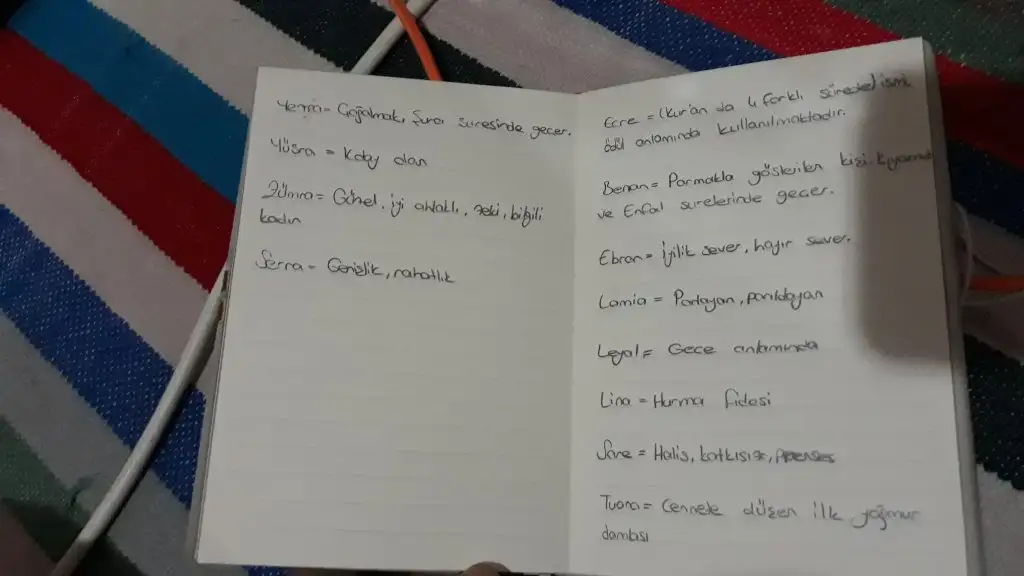 Yenra= Çoğalmak, Şura suresinde geçer.
Yüsra = Kolay olan
Zümra= Güzel, iyi ahlaklı, zeki, bilgili
kadın
Serra= Genişlik, rahatlık
Ecre = (Kur'an da 4 farklı sürede) ismi,
ödül anlamında kullanılmaktadır.
Benan= Parmakla gösterilen kişi. Kıyamet
ve Enfal surelerinde geçer.
Ebran= İyilik sever, hayır sever.
Lamia = Parlayan, parıldayan
Leyal= Gece anlamında
Lina = Hurma fidesi
Sare = Halis, katkısız, prenses
Tuana= Cennete düşen ilk yağmur
damlası